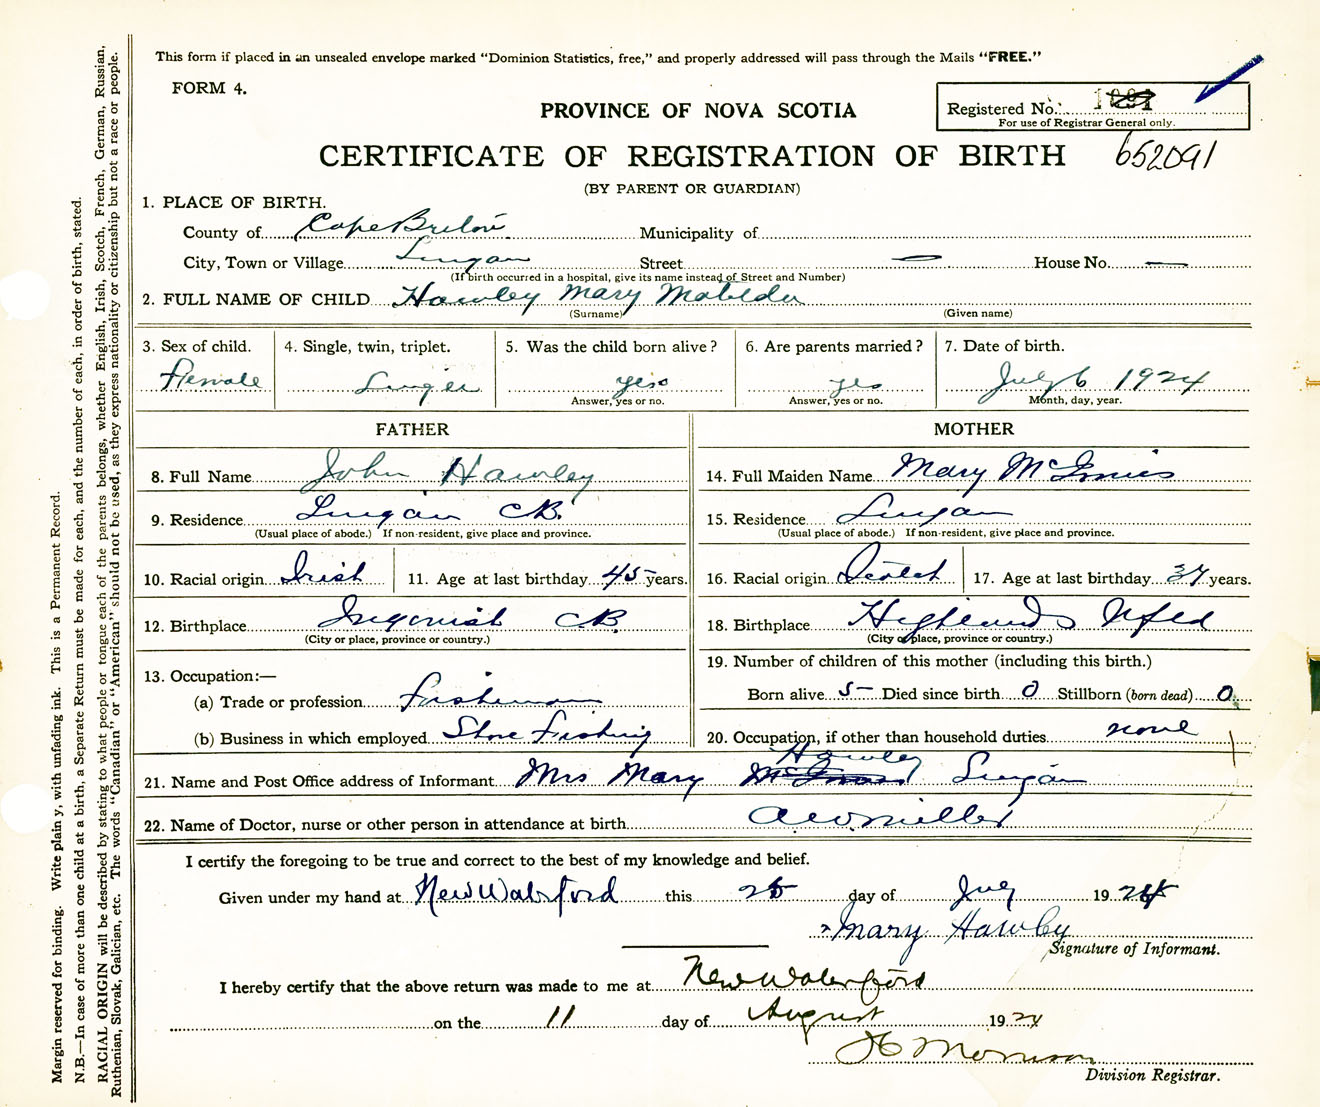 This form if placed in an unsealed envelope marked "Dominion Statistics, free," and properly addressed will pass through the Mails "FREE."
FORM 4.
PROVINCE OF NOVA SCOTIA
Registered No.
For use of Registrar General only.
CERTIFICATE OF REGISTRATION OF BIRTH 652091
(BY PARENT OR GUARDIAN)
1. PLACE OF BIRTH.
County of Cape Breton Municipality of
City, Town or Village Lingan Street — House No. —
(If birth occurred in a hospital, give its name instead of Street and Number)
2. FULL NAME OF CHILD Hawley Mary Matilda
(Surname) (Given name)
3. Sex of child. 4. Single, twin, triplet. 5. Was the child born alive? 6. Are parents married? 7. Date of birth.
Female Single yes yes July 6 1924
Answer, yes or no. Answer, yes or no. Month, day, year.
FATHER MOTHER
8. Full Name John Hawley 14. Full Maiden Name Mary McInnis
9. Residence Lingan CB. 15. Residence Lingan
(Usual place of abode.) If non-resident, give place and province. (Usual place of abode.) If non-resident, give place and province.
10. Racial origin Irish 11. Age at last birthday 45 years. 16. Racial origin Scotch 17. Age at last birthday years.
12. Birthplace Ingonish C.B. 18. Birthplace Highlands Nfld
(City or place, province or country.) (City or place, province or country.)
13. Occupation:— 19. Number of children of this mother (including this birth.)
(a) Trade or profession Fisherman Born alive 5 Died since birth 0 Stillborn (born dead) 0
(b) Business in which employed Shore Fishing 20. Occupation, if other than household duties none
Hawley
21. Name and Post Office address of Informant Mrs Mary McInnis Lingan
22. Name of Doctor, nurse or other person in attendance at birth A W Miller
I certify the foregoing to be true and correct to the best of my knowledge and belief.
Given under my hand at New Waterford this 25 day of July 1924
Mary Hawley
Signature of Informant.
I hereby certify that the above return was made to me at New Waterford
on the 11 day of August 1924
Morrison
Division Registrar.
Margin reserved for binding. Write plainly, with unfading ink. This is a Permanent Record.
N.B.—In case of more than one child at a birth, a Separate Return must be made for each, and the number of each, in order of birth, stated.
RACIAL ORIGIN will be described by stating to what people or tongue each of the parents belongs, whether English, Irish, Scotch, French, German, Russian,
Ruthenian, Slovak, Galician, etc. The words "Canadian" or "American" should not be used, as they express nationality or citizenship but not a race or people.